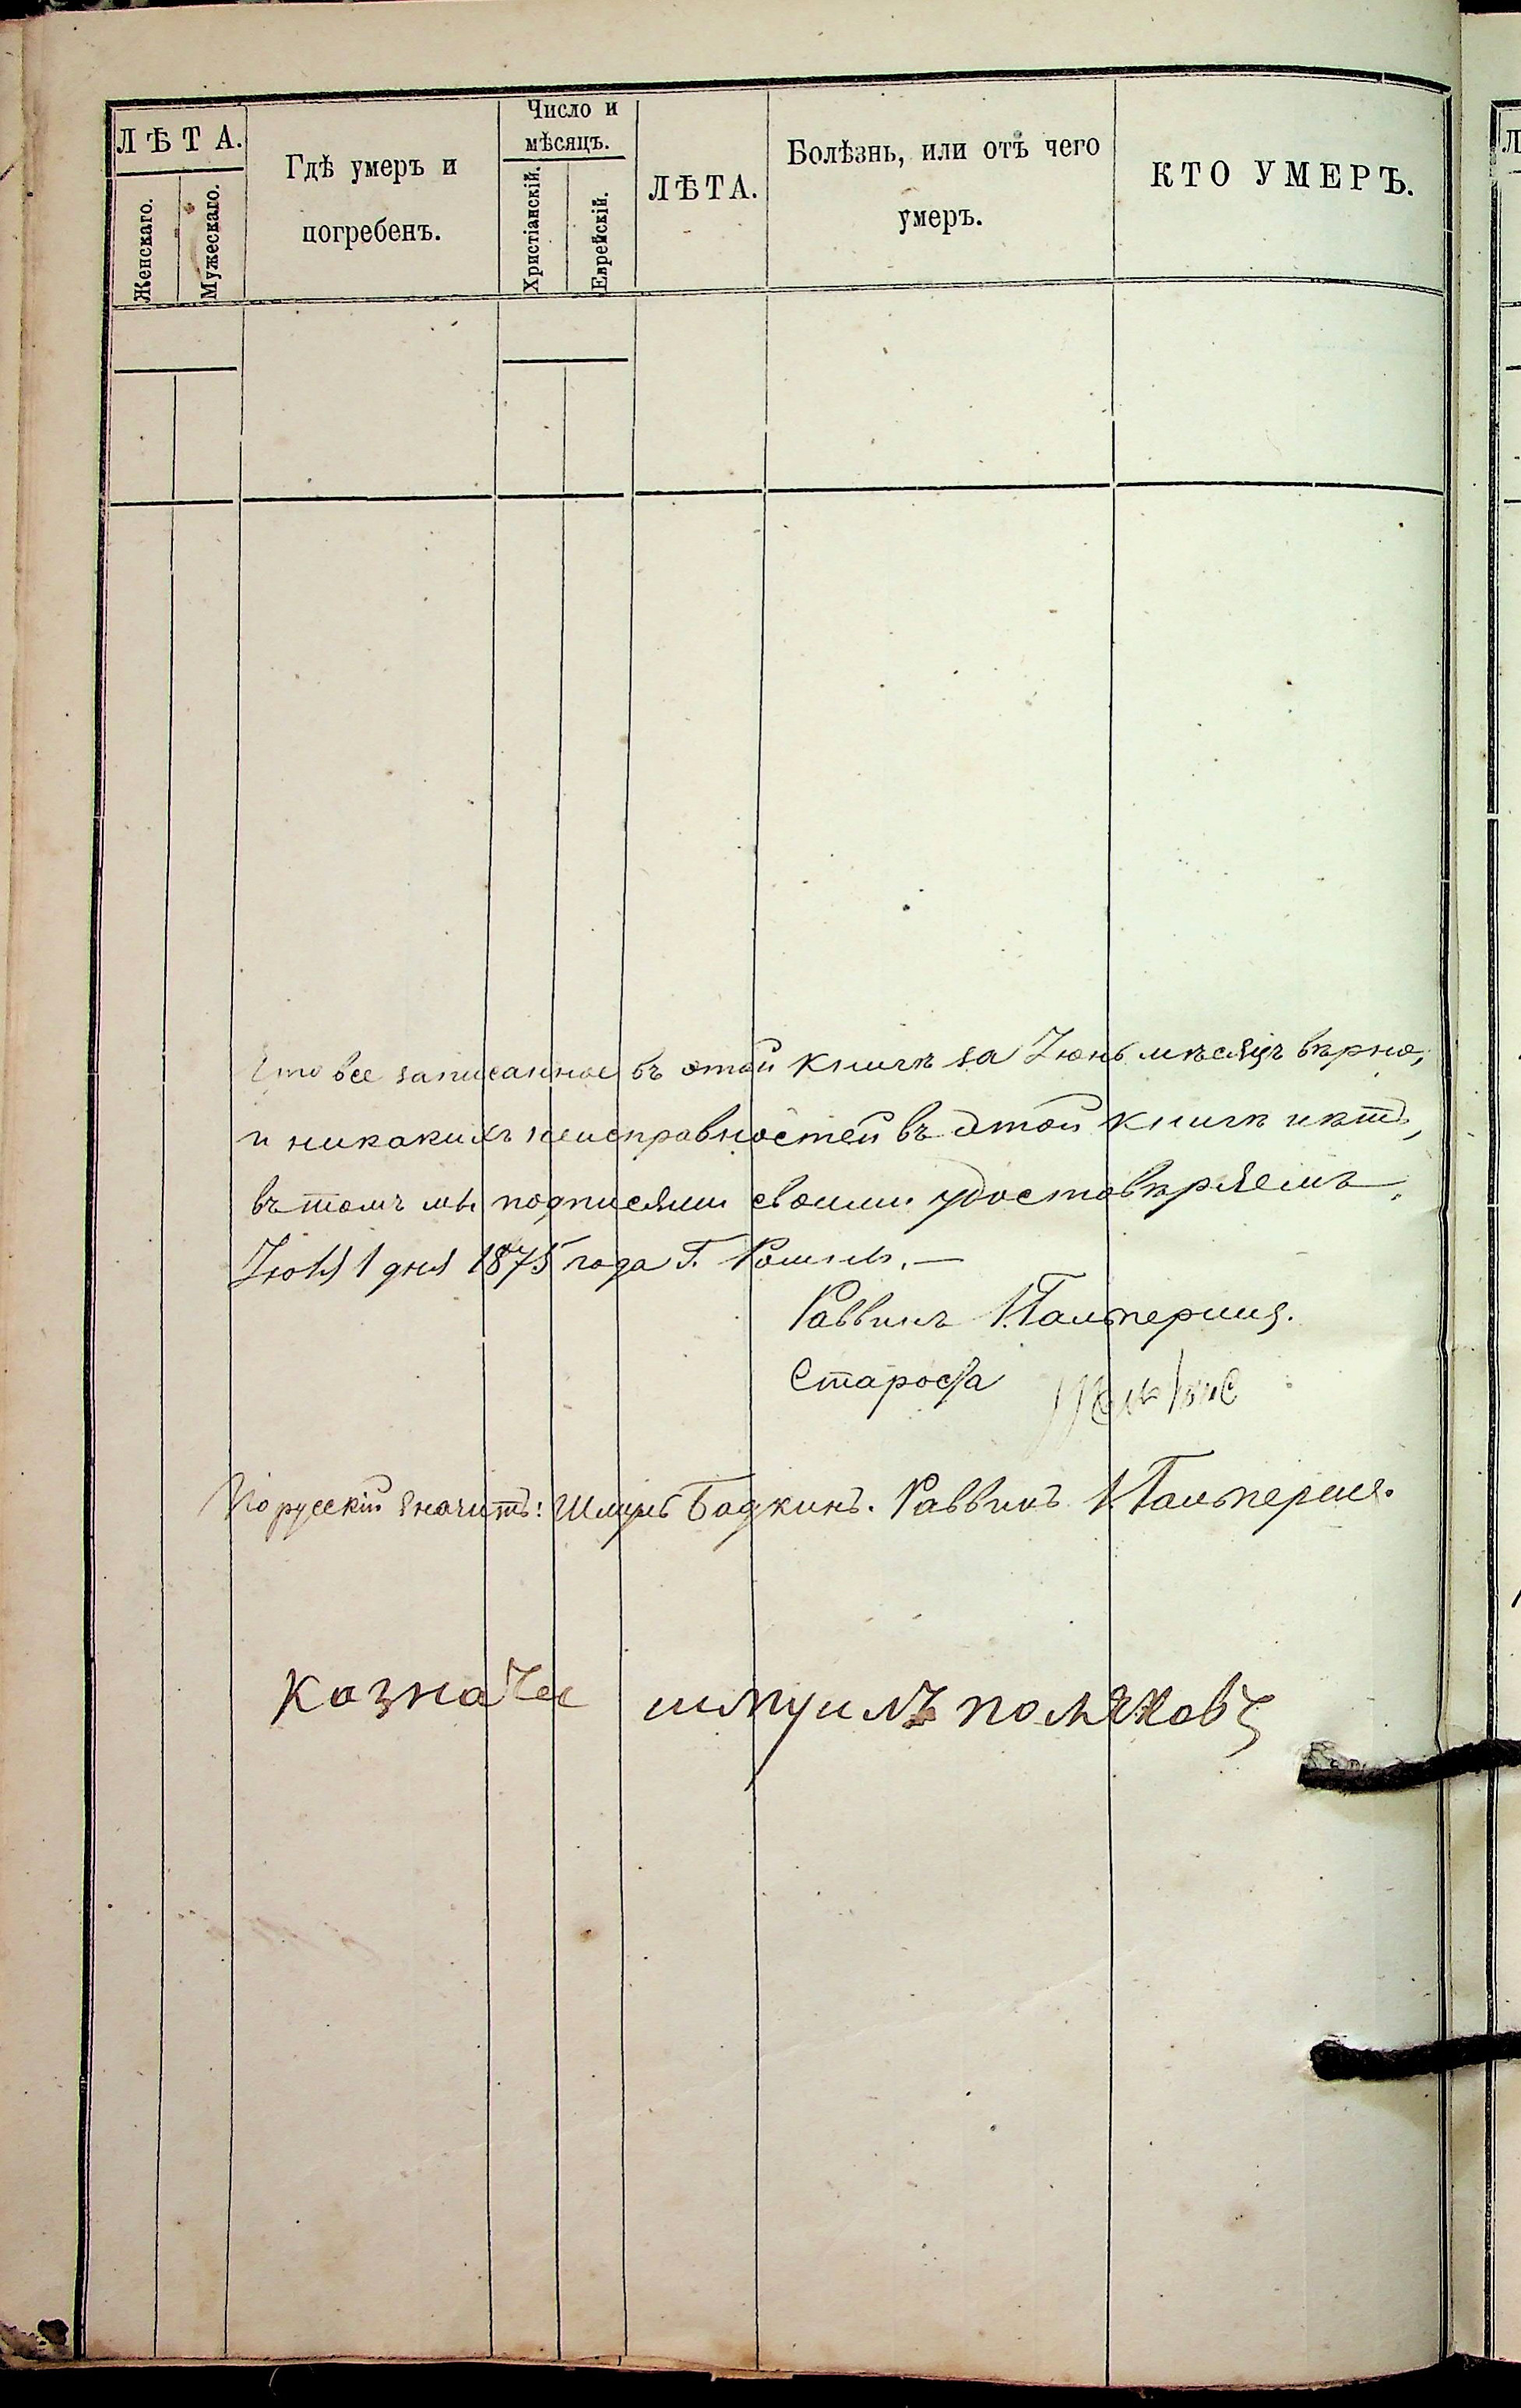 ЛѢТА.
Женскаго.
Мужескаго.
Гдѣ умеръ и
погребенъ.
Число и
мѣсяцъ.
Христіанскій.
Еврейскій.
ЛѢТА.
Болѣзнь, или отъ чего
умеръ.
КТО УМЕРЪ.
Что все записанное въ этой книгѣ за Іюнь мѣсяцъ вѣрно,
и никакихъ неисправностей въ этой книгѣ нѣтъ,
въ томъ мы подписями своими удостовѣряемъ.
1 дня 1875 года Г. Ромны.—
Раввинъ
Староста
По русскій значитъ: Шмуль Бадкинъ. Раввинъ
Казначеи шмуилъ поляковъ